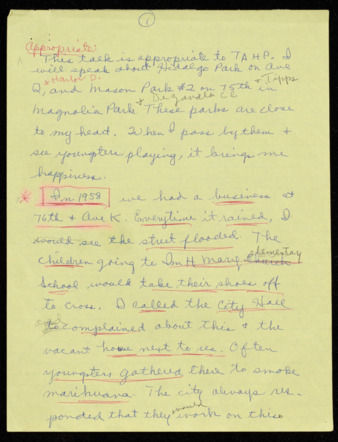 1
Appropriate:
This talk is appropriate to TAHP. I
will speak about Hidalgo Park on Ave
Q, and Mason Park #2 on 75th in
Magnolia Park These parks are close
to my heart. When I pass by them &
see youngsters playing, it brings me
happiness.
* In 1958 we had a business at
76th & Ave K. Everytime it rained, I
would see the street flooded. The
children going to elementary
School would take their shoes off
to cross. I called the City Hall
to complained about this & the
vacant house next to us. Often
youngsters gathered there to smoke
marihuana. The city always res-
ponded that they would work on this